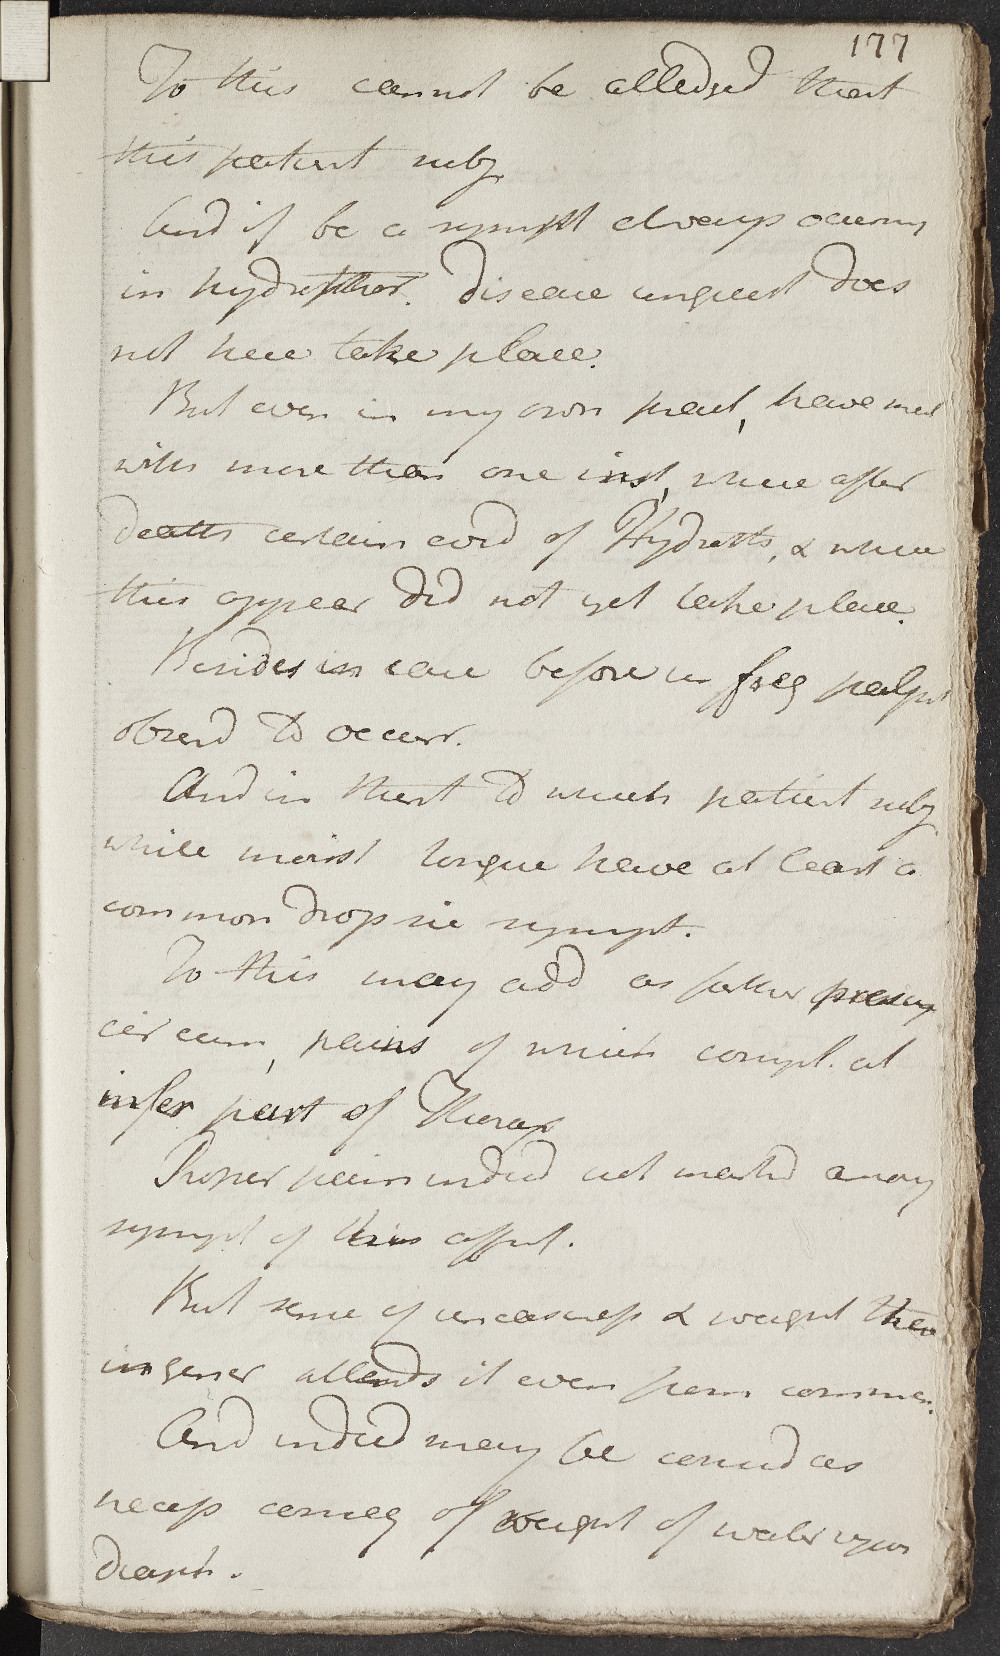 177
To this cannot be alledged that
this patient subj
And if be a sympt always occurring
in hydrothor. disease unquest does
not here take place.
But even in my own pract, have met
with more than one inst, where after
death certain evid of Hydroth, & where
this appear did not yet take place.
Besides in case before us freq palpit
observd to occur.
And in thirst to which patient subj
while moist tongue have at least a
common dropsie sympt.
To this may add as farther presump
circum, pains of which compl. at
infer part of Thorax
Proper pain indeed not markd among
sympt of this affect.
But sense of uneasiness & weight there
in gener attends it even from commen.
And indeed may be considd as
necess conseq of weight of water upon
diaph.